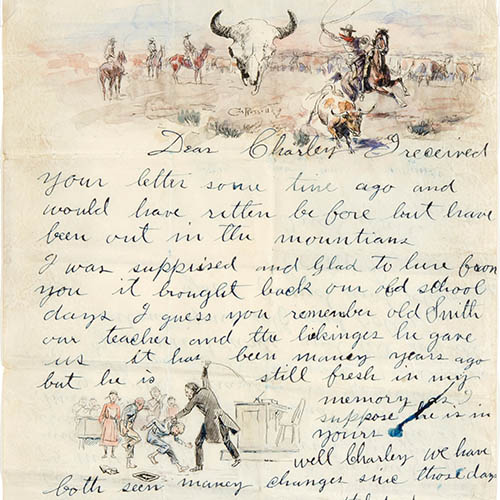 CM Russell
Dear Charley I received
your letter some time ago and
would have ritten before but have
been out in the mountians
I was suppised and Glad to hure from
you it brought back our old school
days I guess you remember old Smith
our teacher and the likinges he gave
us it has been maney years ago
but he is still fresh in my
memory as I
suppose he is in
yours
well Charley we have
both seen maney changes sinc those days